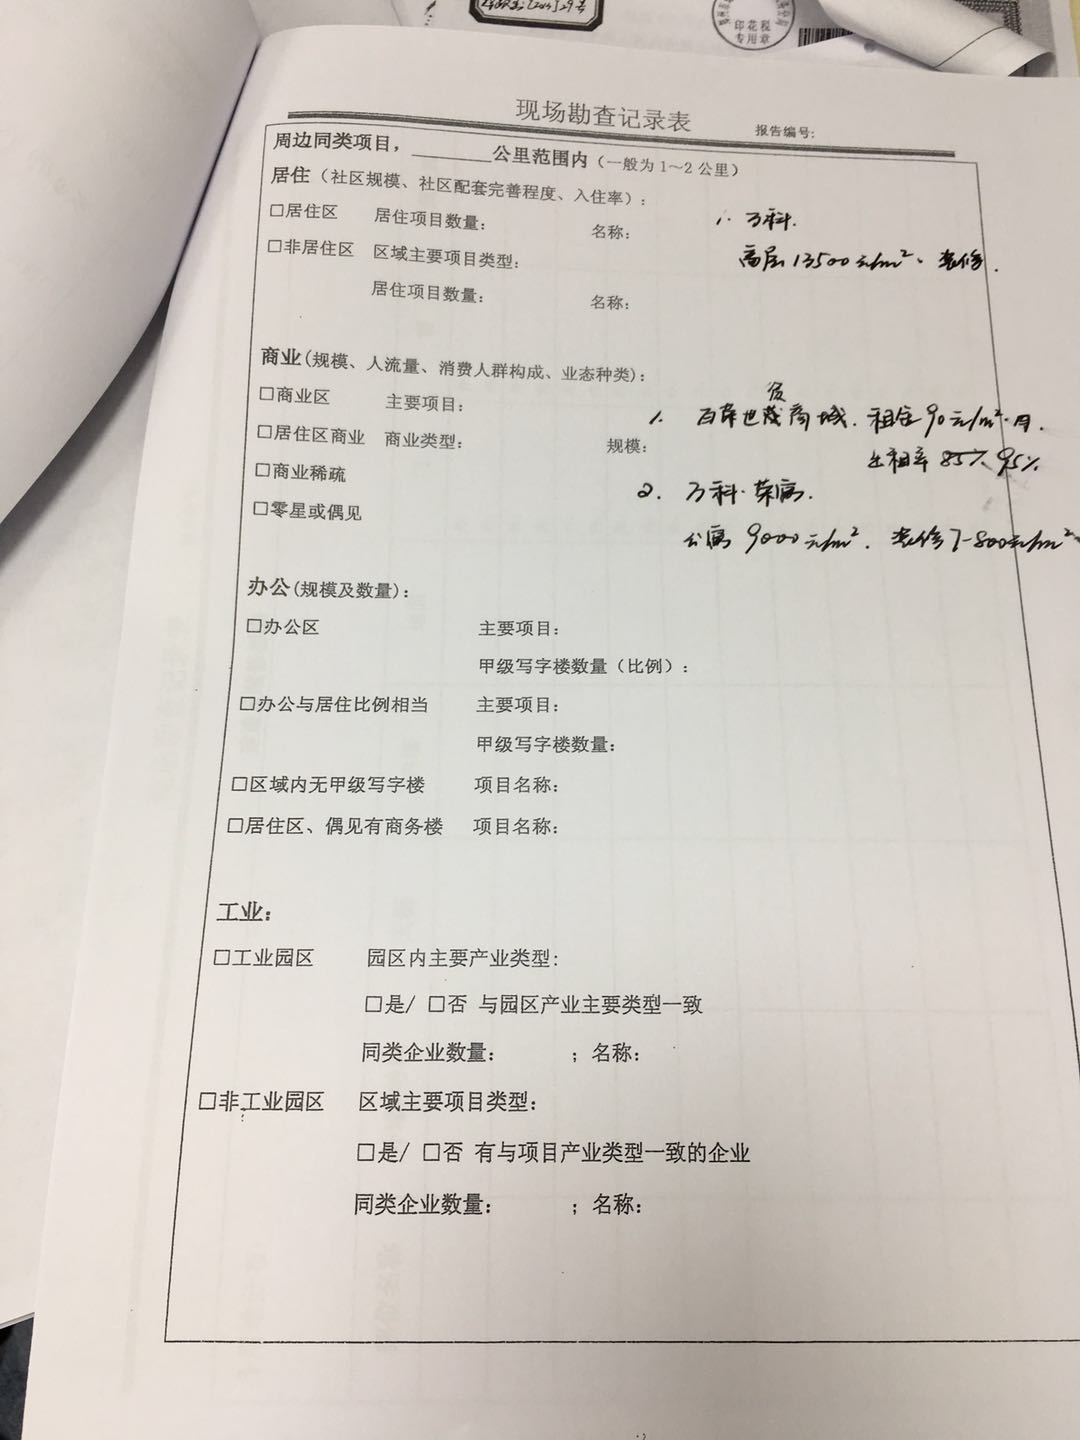 印花税
专用章
现场勘查记录表
报告编号:
周边同类项目，________公里范围内（一般为1～2公里）
居住（社区规模、社区配套完善程度、入住率）：
□居住区 居住项目数量： 名称： 1. 万科.
□非居住区 区域主要项目类型： 高层13500元/m²、装修.
居住项目数量： 名称：
商业(规模、人流量、消费人群构成、业态种类)：
□商业区 主要项目：
□居住区商业 商业类型： 规模： 1. 百荣世贸商城. 租金90元/m²·月.
□商业稀疏 出租率 85% 95%
□零星或偶见 2. 万科·荣寓.
公寓 9000元/m². 装修7-800元/m²
办公(规模及数量)：
□办公区 主要项目：
甲级写字楼数量（比例）：
□办公与居住比例相当 主要项目：
甲级写字楼数量：
□区域内无甲级写字楼 项目名称：
□居住区、偶见有商务楼 项目名称：
工业：
□工业园区 园区内主要产业类型：
□是/ □否 与园区产业主要类型一致
同类企业数量： ；名称：
□非工业园区 区域主要项目类型：
□是/ □否 有与项目产业类型一致的企业
同类企业数量： ；名称：